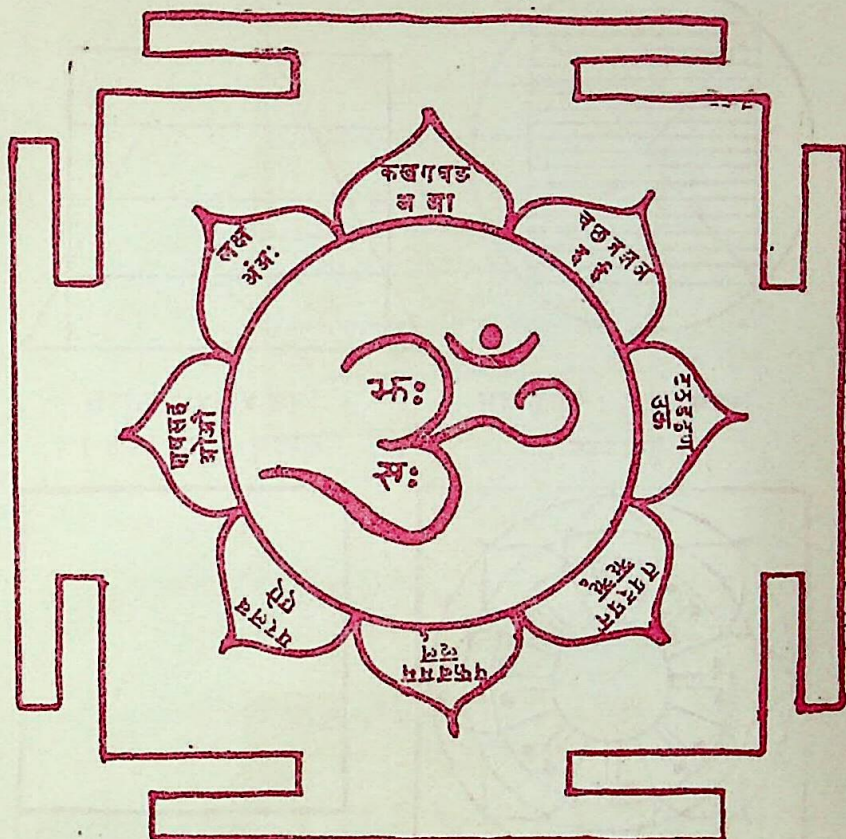 कखगघङ
अ आ
चछजझञ
इ ई
टठडढण
उऊ
तथदधन
ऋॠ
पफबभम
ऌॡ
यरलव
एऐ
शषसह
ओऔ
लक्ष
अंअः
ॐ